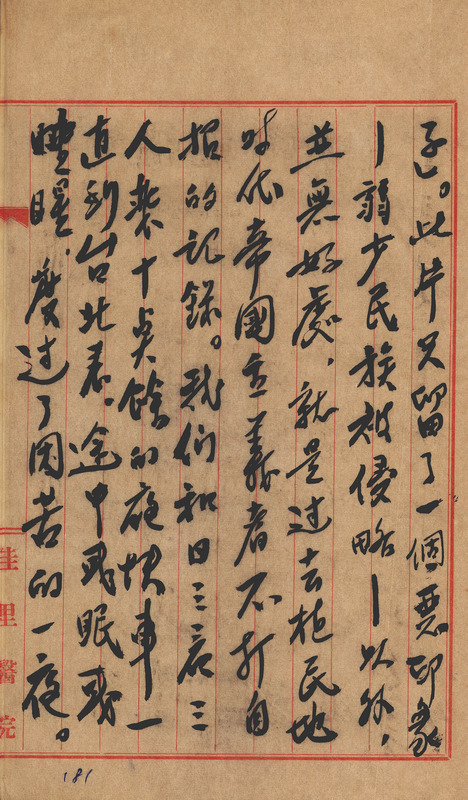 子」。此片只留了一個惡印象
—弱少民族被侵略—以外,
並無好處,就是过去植民地
时代帝國主義者不打自
招的記錄。我们和日三君三
人乘十点餘的夜快車一
直到台北。途中或眠或
,度过了困苦的一夜。
佳里醫院
181